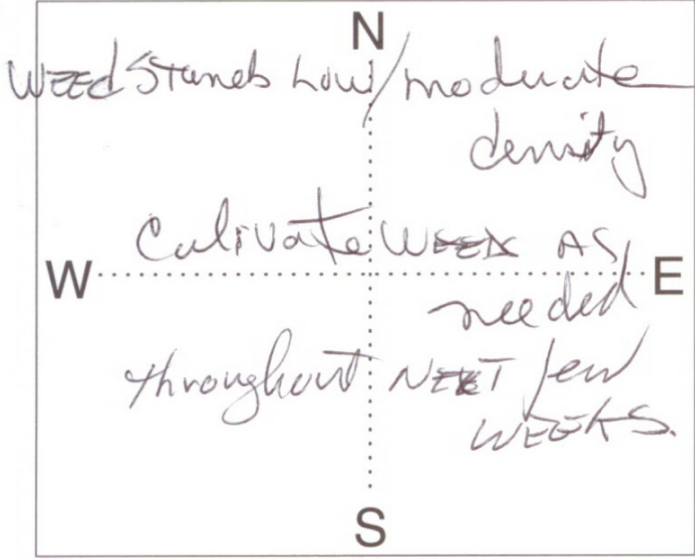 N
WEEd Stands Low/moderate
density
Culivate WEEDS AS
W E
needed
throughout NEXT few
WEEKS.
S